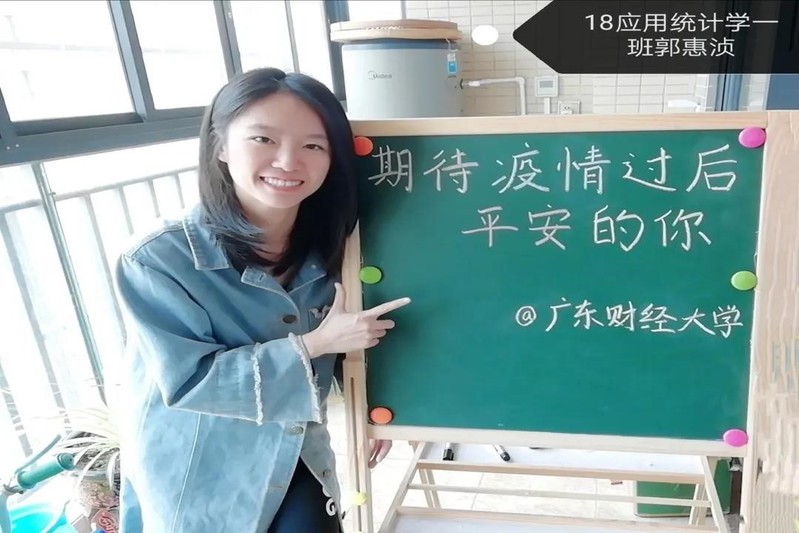 18应用统计学一
班郭惠浈
Midea
期待疫情过后
平安的你
@广东财经大学